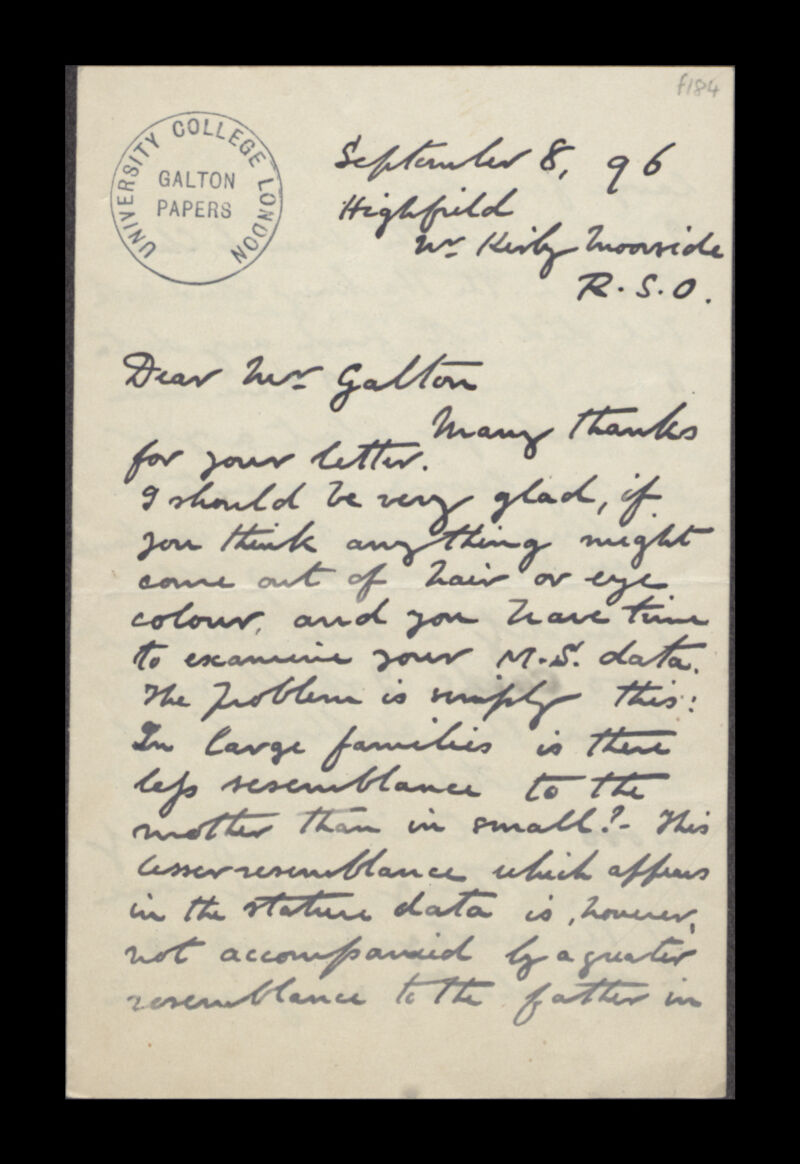 f184
UNIVERSITY COLLEGE LONDON
GALTON
PAPERS
September 8, 96
Highfield
Nr Kirby Moorside
R.S.O.
Dear Mr Galton
Many thanks
for your letter.
I should be very glad, if
you think anything might
come out of hair or eye
colour, and you have time
to examine your M.S. data.
The problem is simply this:
In large families is there
less resemblance to the
mother than in small?- This
lesser resemblance which appears
in the stature data is, however,
not accompanied by a greater
resemblance to the father in